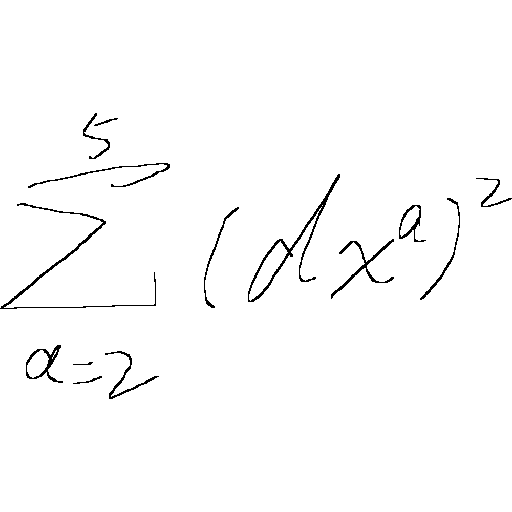 \sum_{a=2}^{5} (dx^a)^2